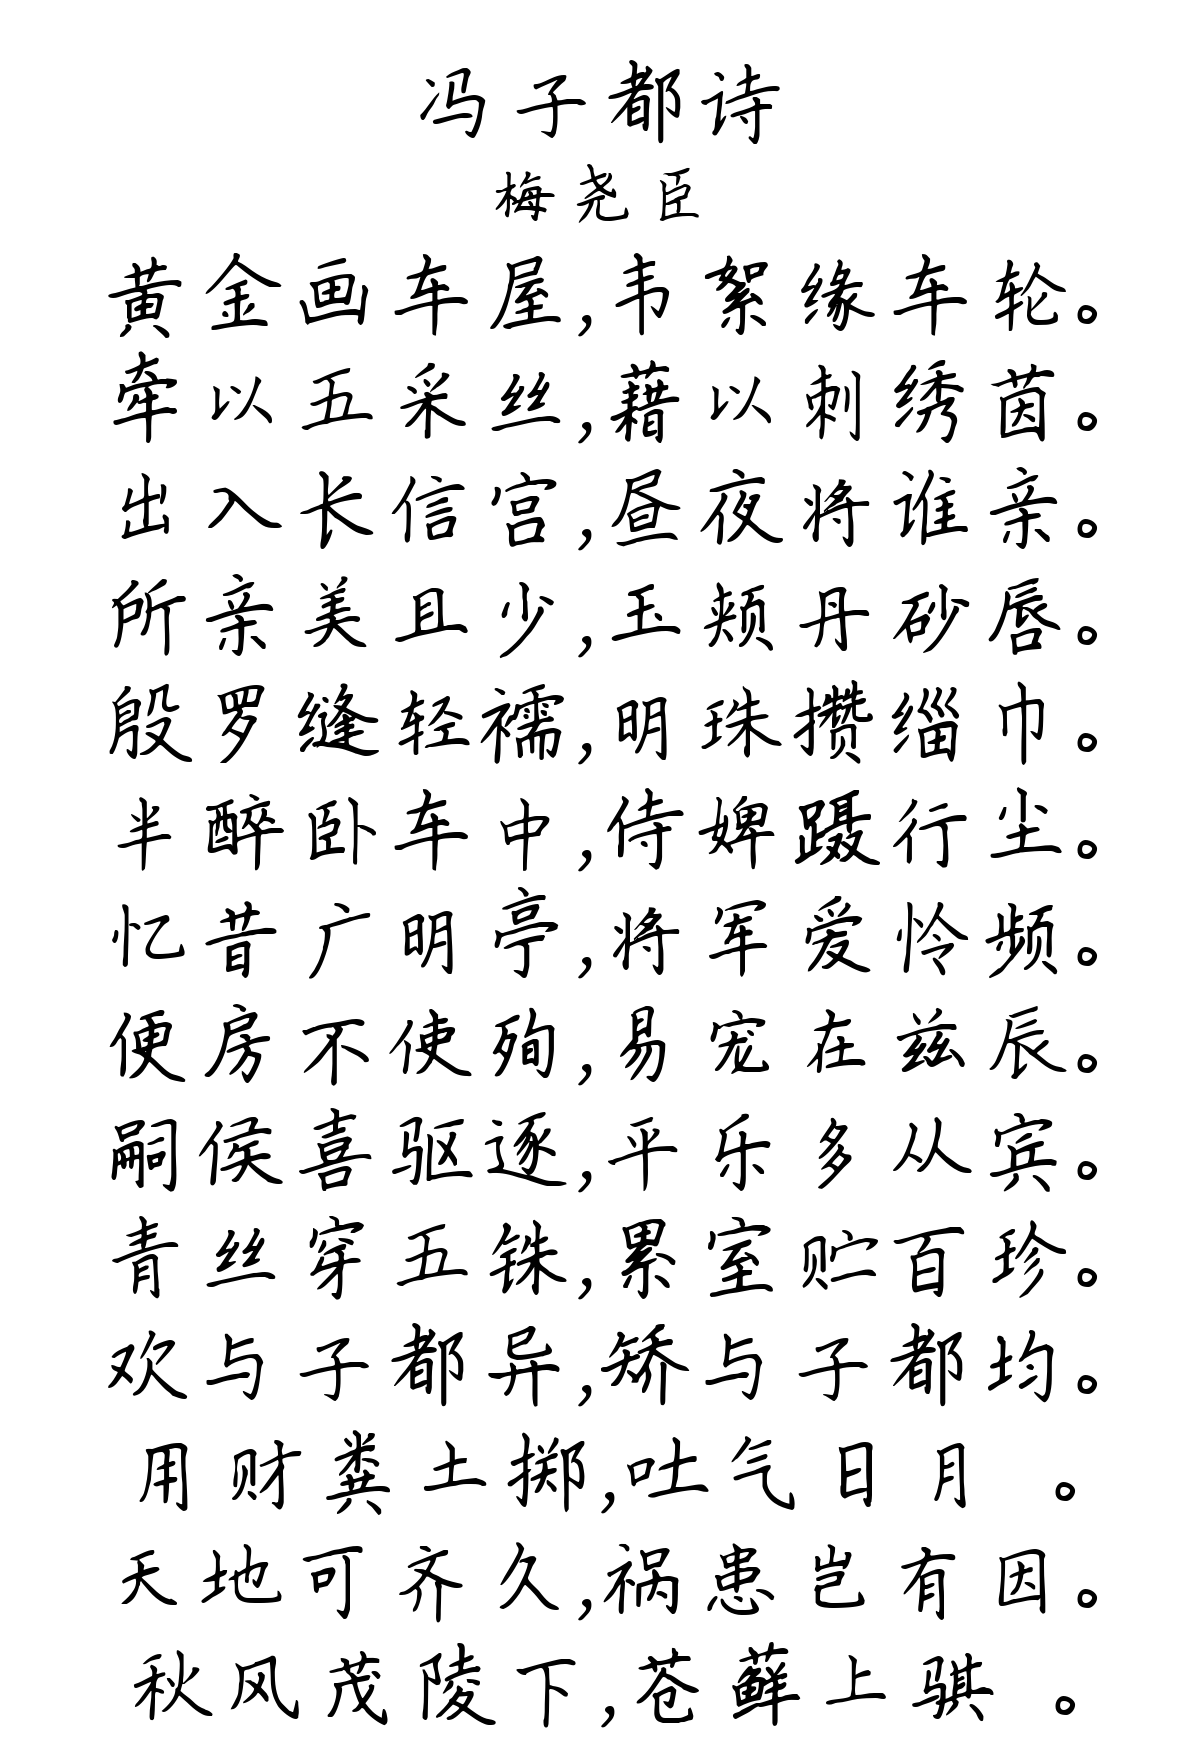 冯子都诗
梅尧臣
黄金画车屋,韦絮缘车轮。
牵以五采丝,藉以刺绣茵。
出入长信宫,昼夜将谁亲。
所亲美且少,玉颊丹砂唇。
殷罗缝轻襦,明珠攒缁巾。
半醉卧车中,侍婢蹑行尘。
忆昔广明亭,将军爱怜频。
便房不使殉,易宠在兹辰。
嗣侯喜驱逐,平乐多从宾。
青丝穿五铢,累室贮百珍。
欢与子都异,矫与子都均。
用财粪土掷,吐气日月 。
天地可齐久,祸患岂有因。
秋风茂陵下,苍藓上骐 。